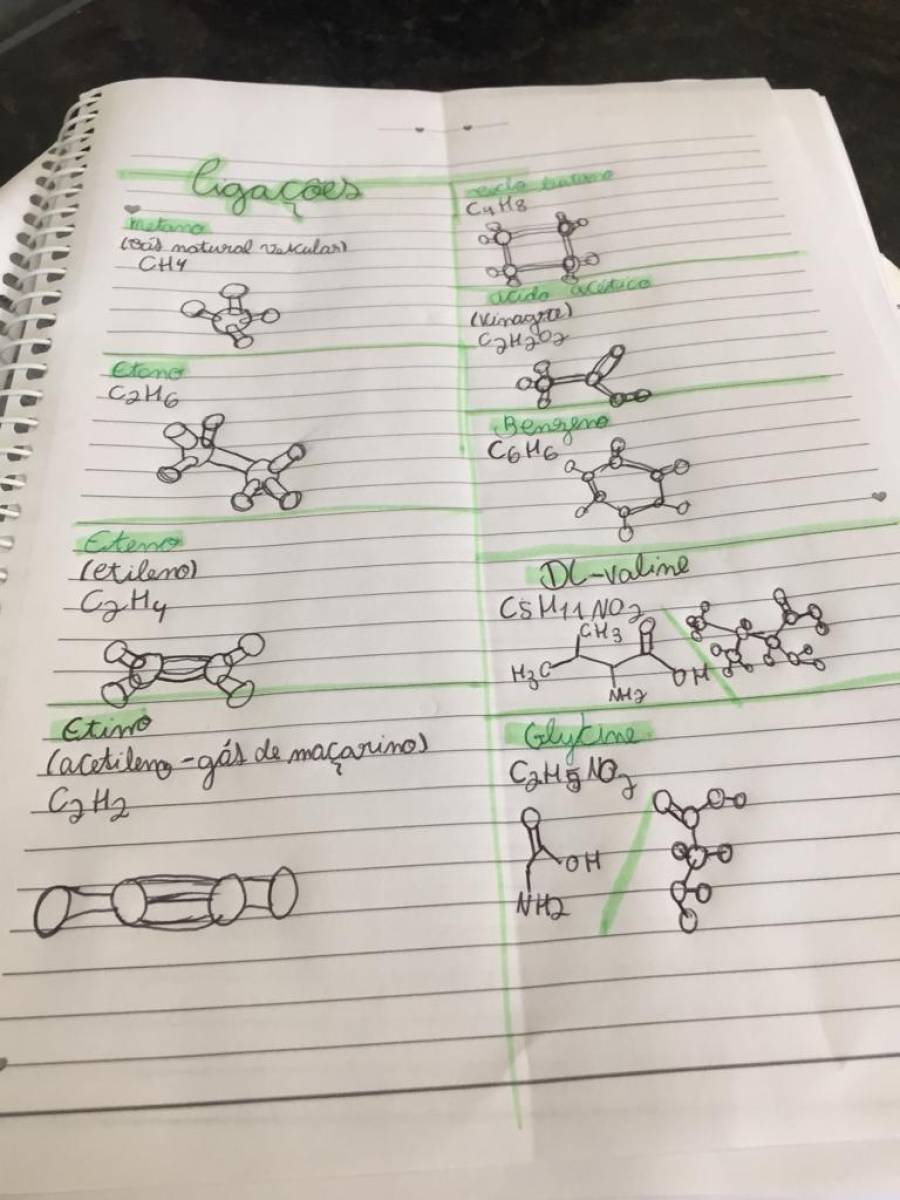 ligações
metano
(Gás natural veicular)
CH4
Etano
C2H6
Eteno
(etileno)
C2H4
Etino
(acetileno - gás de maçarino)
C2H2
ciclo butano
C4H8
ácido acético
(vinagre)
C2H2O2
Benzeno
C6H6
DL-valine
C5H11NO2
CH3
H3C
OH
NH2
Glycine
C2H5NO2
OH
NH2